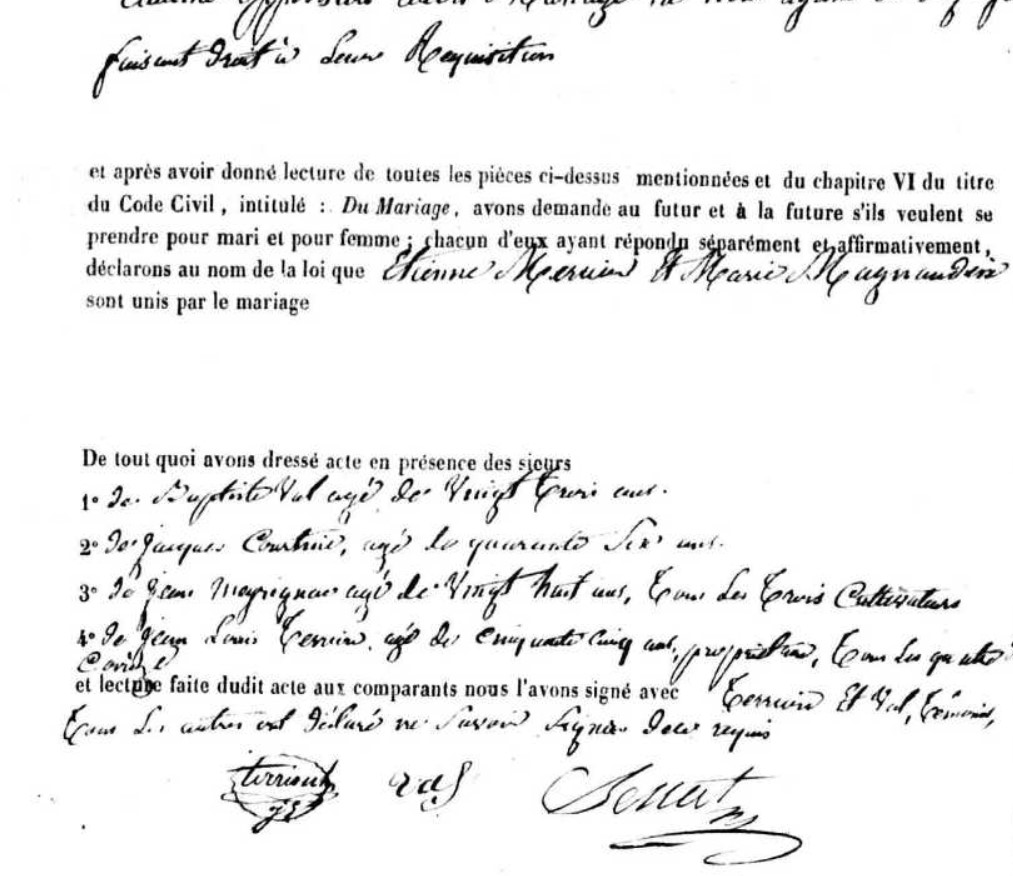 faisant droit à Leur Requisition
et après avoir donné lecture de toutes les pièces ci-dessus mentionnées et du chapitre VI du titre
du Code Civil, intitulé : Du Mariage, avons demandé au futur et à la future s'ils veulent se
prendre pour mari et pour femme ; chacun d'eux ayant répondu séparément et affirmativement,
déclarons au nom de la loi que Etienne Et Marie
sont unis par le mariage
De tout quoi avons dressé acte en présence des sieurs
1° De Baptiste Val agé de Vingt Trois ans.
2° De Jacques agé de quarante Six ans.
3° De Jean Meyrignac agé de Vingt huit ans, Tous Les Trois Cultivateurs
4° De Jean Louis Terrieux, agé de Cinquante Cinq ans, propriétaire, Tous Les quatre
et lecture faite dudit acte aux comparants nous l'avons signé avec Et Val, Témoins,
Tous Les autres ont déclaré ne Savoir Signer De ce requis
val